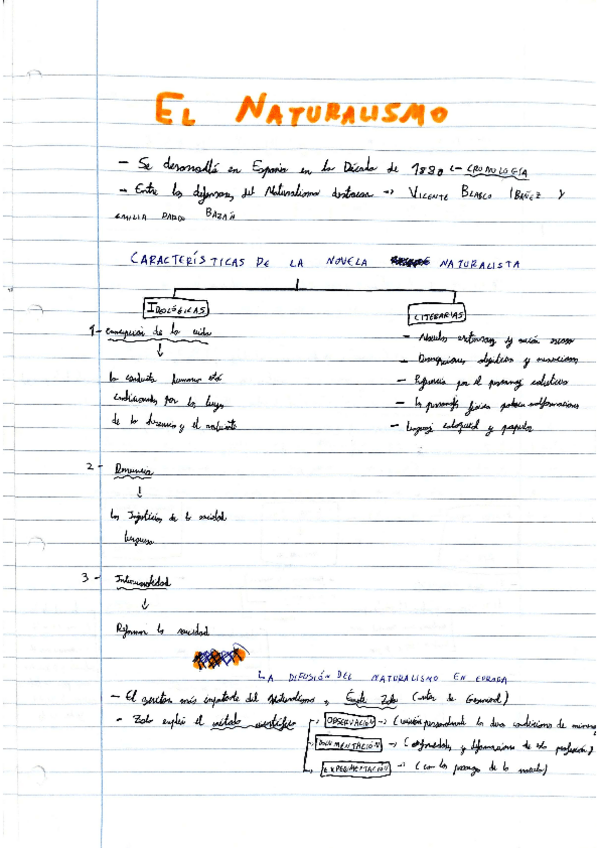 EL NATURALISMO
- Se desarrolló en España en la Década de 1880 ← CRONOLOGÍA
- Entre los defensores del Naturalismo destacan → VICENTE BLASCO IBAÑEZ Y
EMILIA PARDO BAZÁN
CARACTERÍSTICAS DE LA NOVELA NATURALISTA
IDEOLÓGICAS
LITERARIAS
1- Concepción de la vida
↓
la conducta humana está
condicionada por las leyes
de la herencia y el ambiente
- Novelas extensas y acción escasa
- Descripciones objetivas y minuciosas
- Preferencia por el personaje colectivo
- Los personajes
- Lenguaje coloquial y popular
2- Denuncia
↓
las Injusticias de la sociedad
burguesa
3- Intencionalidad
↓
Reformar la sociedad
LA DIFUSIÓN DEL NATURALISMO EN EUROPA
- El escritor más importante del Naturalismo, Emile Zola (autor de Germinal)
- Zola explicó el método científico
OBSERVACIÓN → (personalmente la dura condiciones de mineros
DOCUMENTACIÓN → (enfermedades y de esta profesión)
EXPERIMENTACIÓN → (con los personajes de la novela)